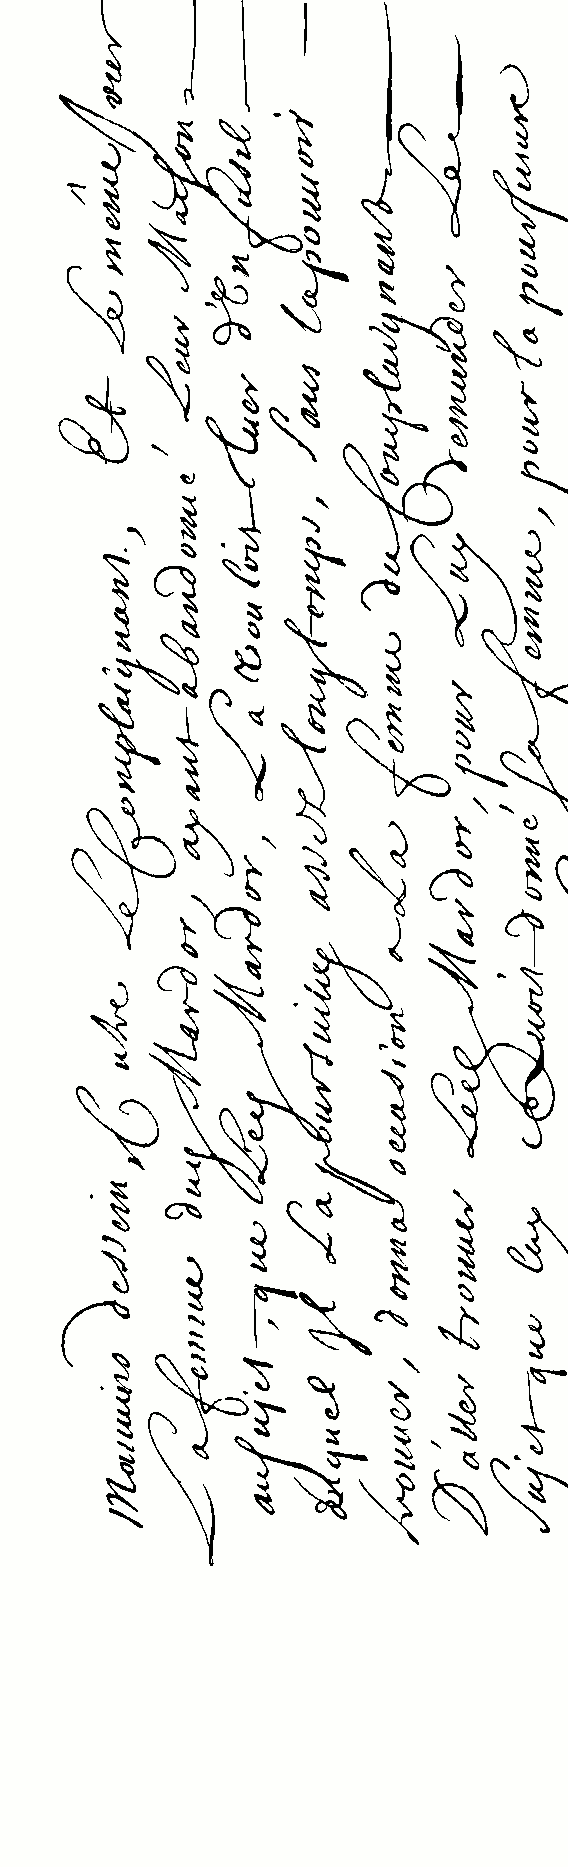 mauuais dessein, Contre Le Complaignant, Et Le même Jour
La femme dud Mardor, ayant abandonné Leur Maison
au sujet, que Led Mardor, La vouloit tuer d'En fusil
duquel Jl La poursuiuy assez longtemps, sans la pouuoir
trouuer, donna occasion a La femme du Complaignant
D'aller trouuer Led Mardor, pour Luy Demander Le
Sujet que luy auoit donné sa femme, pour la poursuiure